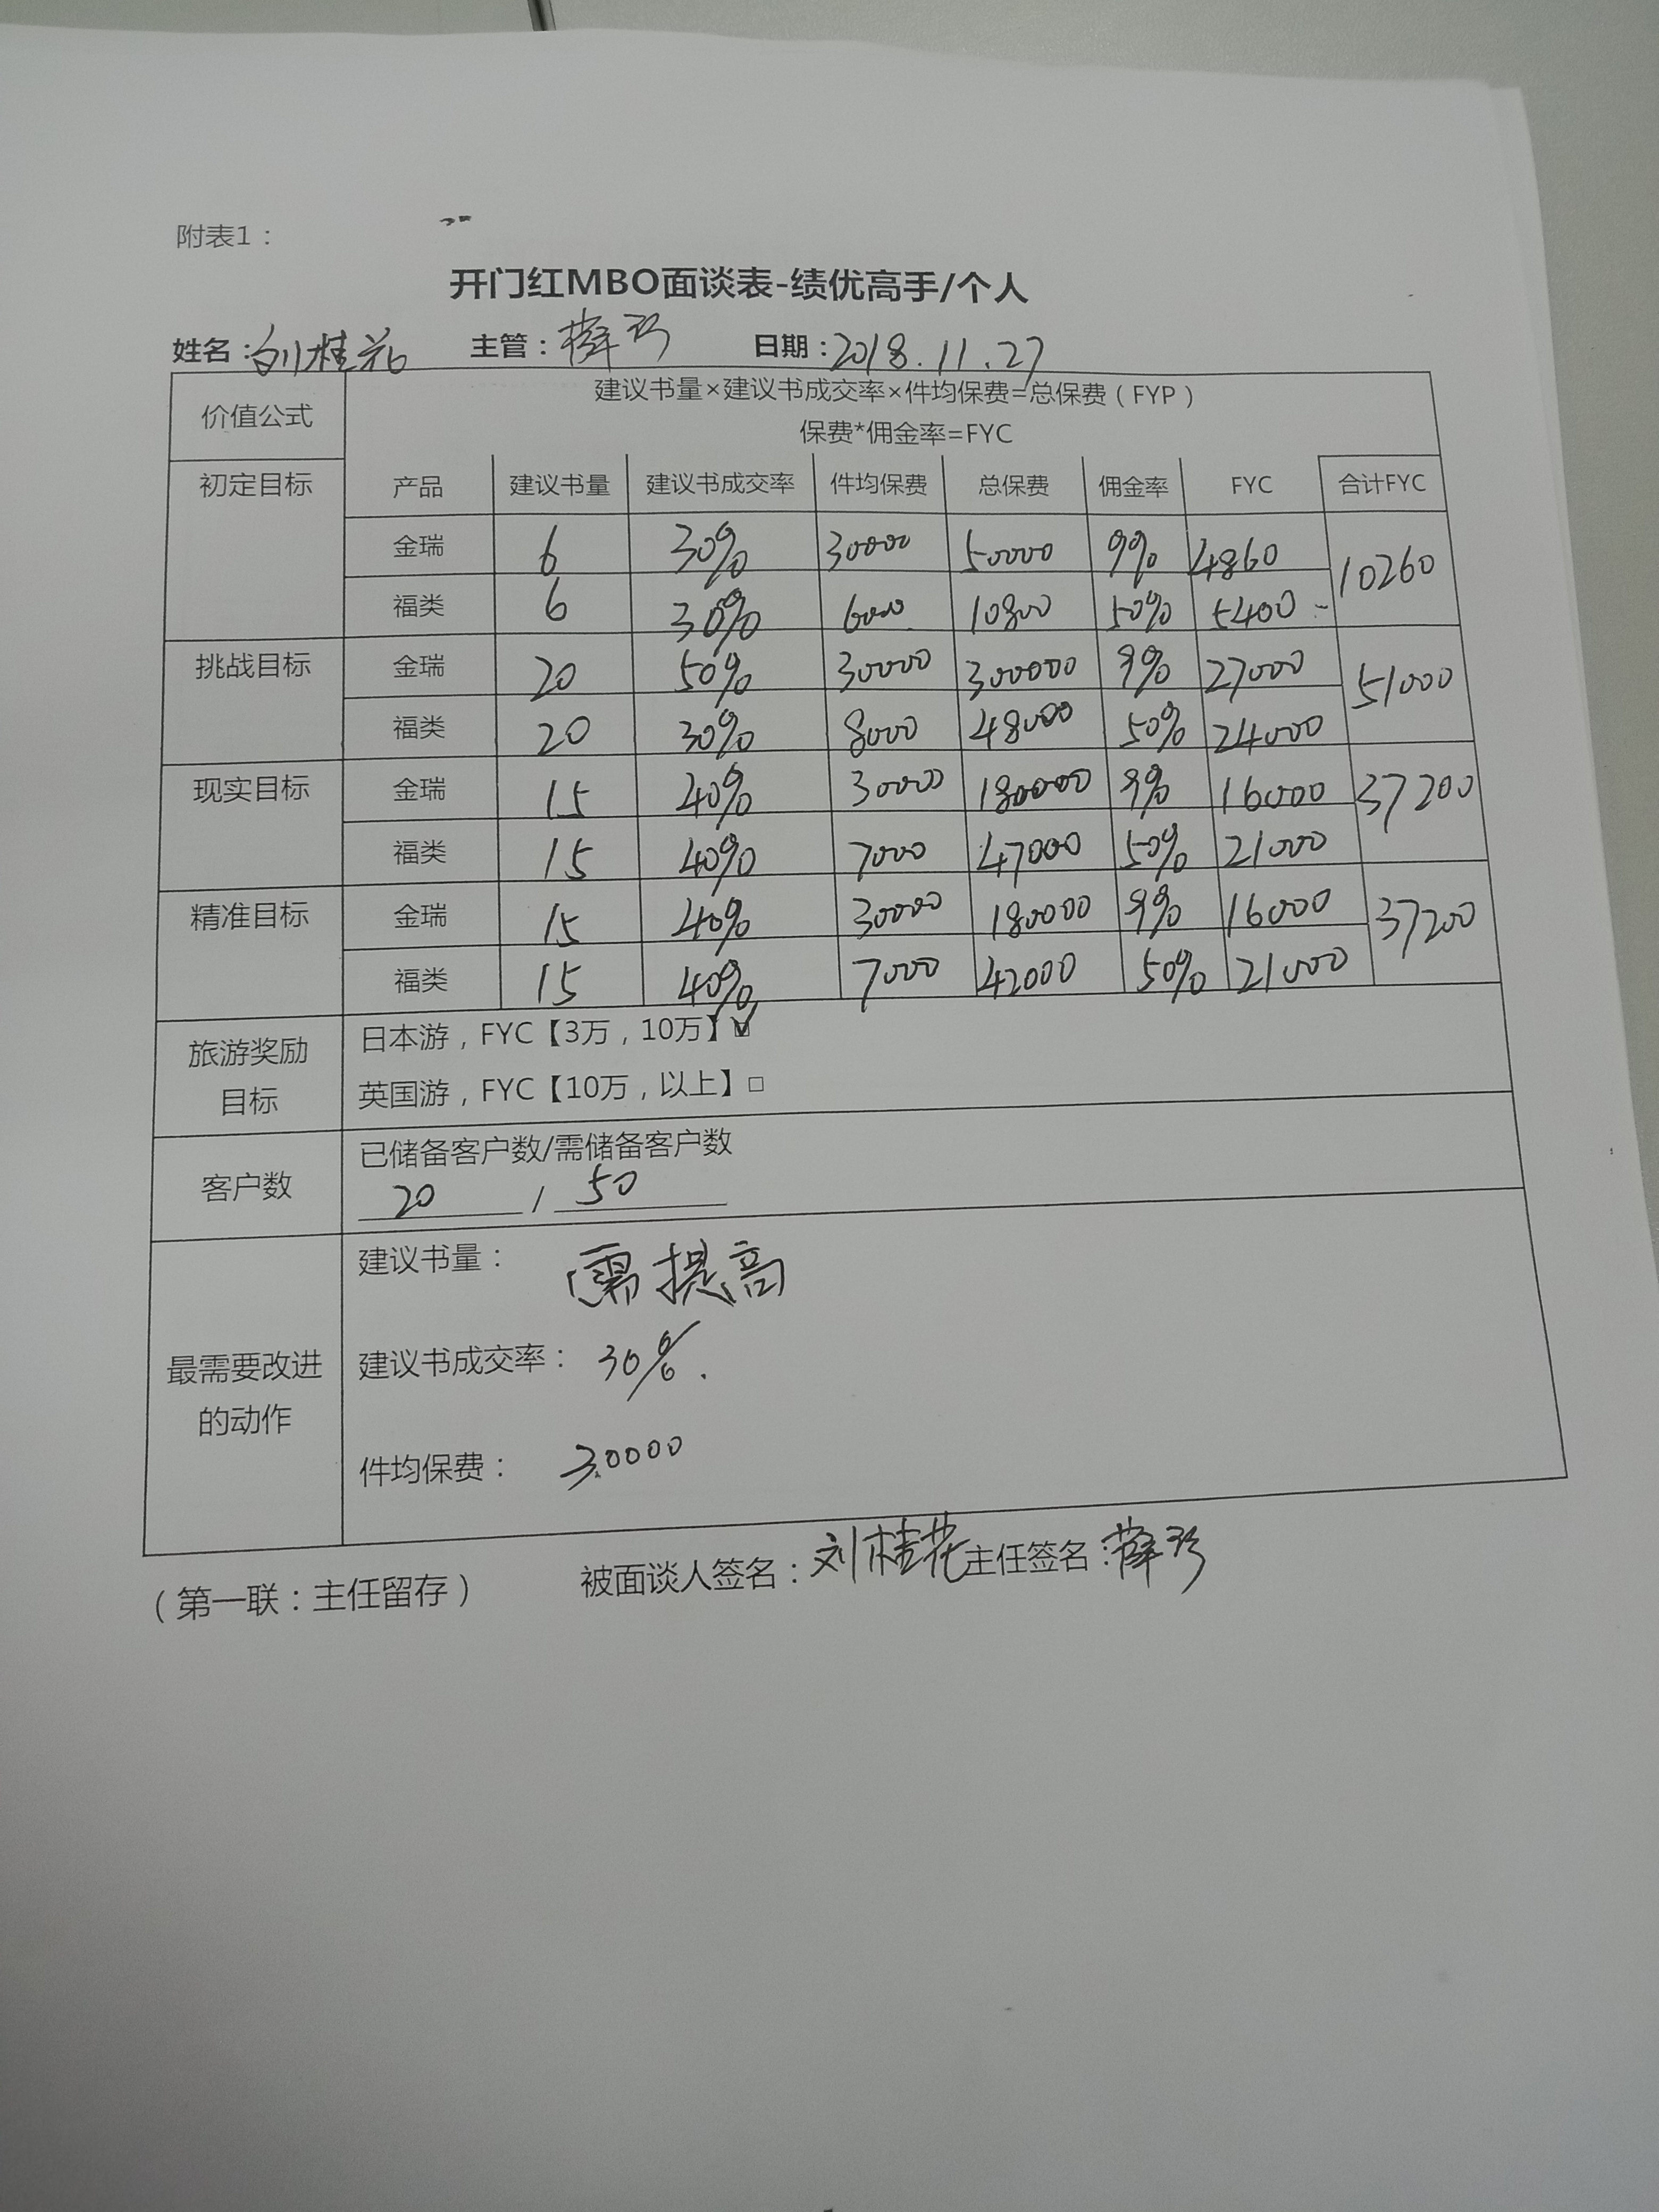 附表1：
开门红MBO面谈表-绩优高手/个人
姓名：刘桂花 主管：薛珍 日期：2018.11.27
价值公式 建议书量×建议书成交率×件均保费=总保费（FYP）
保费*佣金率=FYC
初定目标 产品 建议书量 建议书成交率 件均保费 总保费 佣金率 FYC 合计FYC
金瑞 6 30% 30000 50000 9% 4860 10260
福类 6 30% 6000 10800 50% 5400
挑战目标 金瑞 20 50% 30000 300000 9% 27000 51000
福类 20 30% 8000 48000 50% 24000
现实目标 金瑞 15 40% 30000 180000 9% 16000 37200
福类 15 40% 7000 47000 50% 21000
精准目标 金瑞 15 40% 30000 180000 9% 16000 37200
福类 15 40% 7000 42000 50% 21000
旅游奖励目标 日本游，FYC【3万，10万】☑
英国游，FYC【10万，以上】□
客户数 已储备客户数/需储备客户数
20 / 50
最需要改进的动作 建议书量： 需提高
建议书成交率： 30%.
件均保费： 30000
（第一联：主任留存） 被面谈人签名：刘桂花 主任签名：薛珍